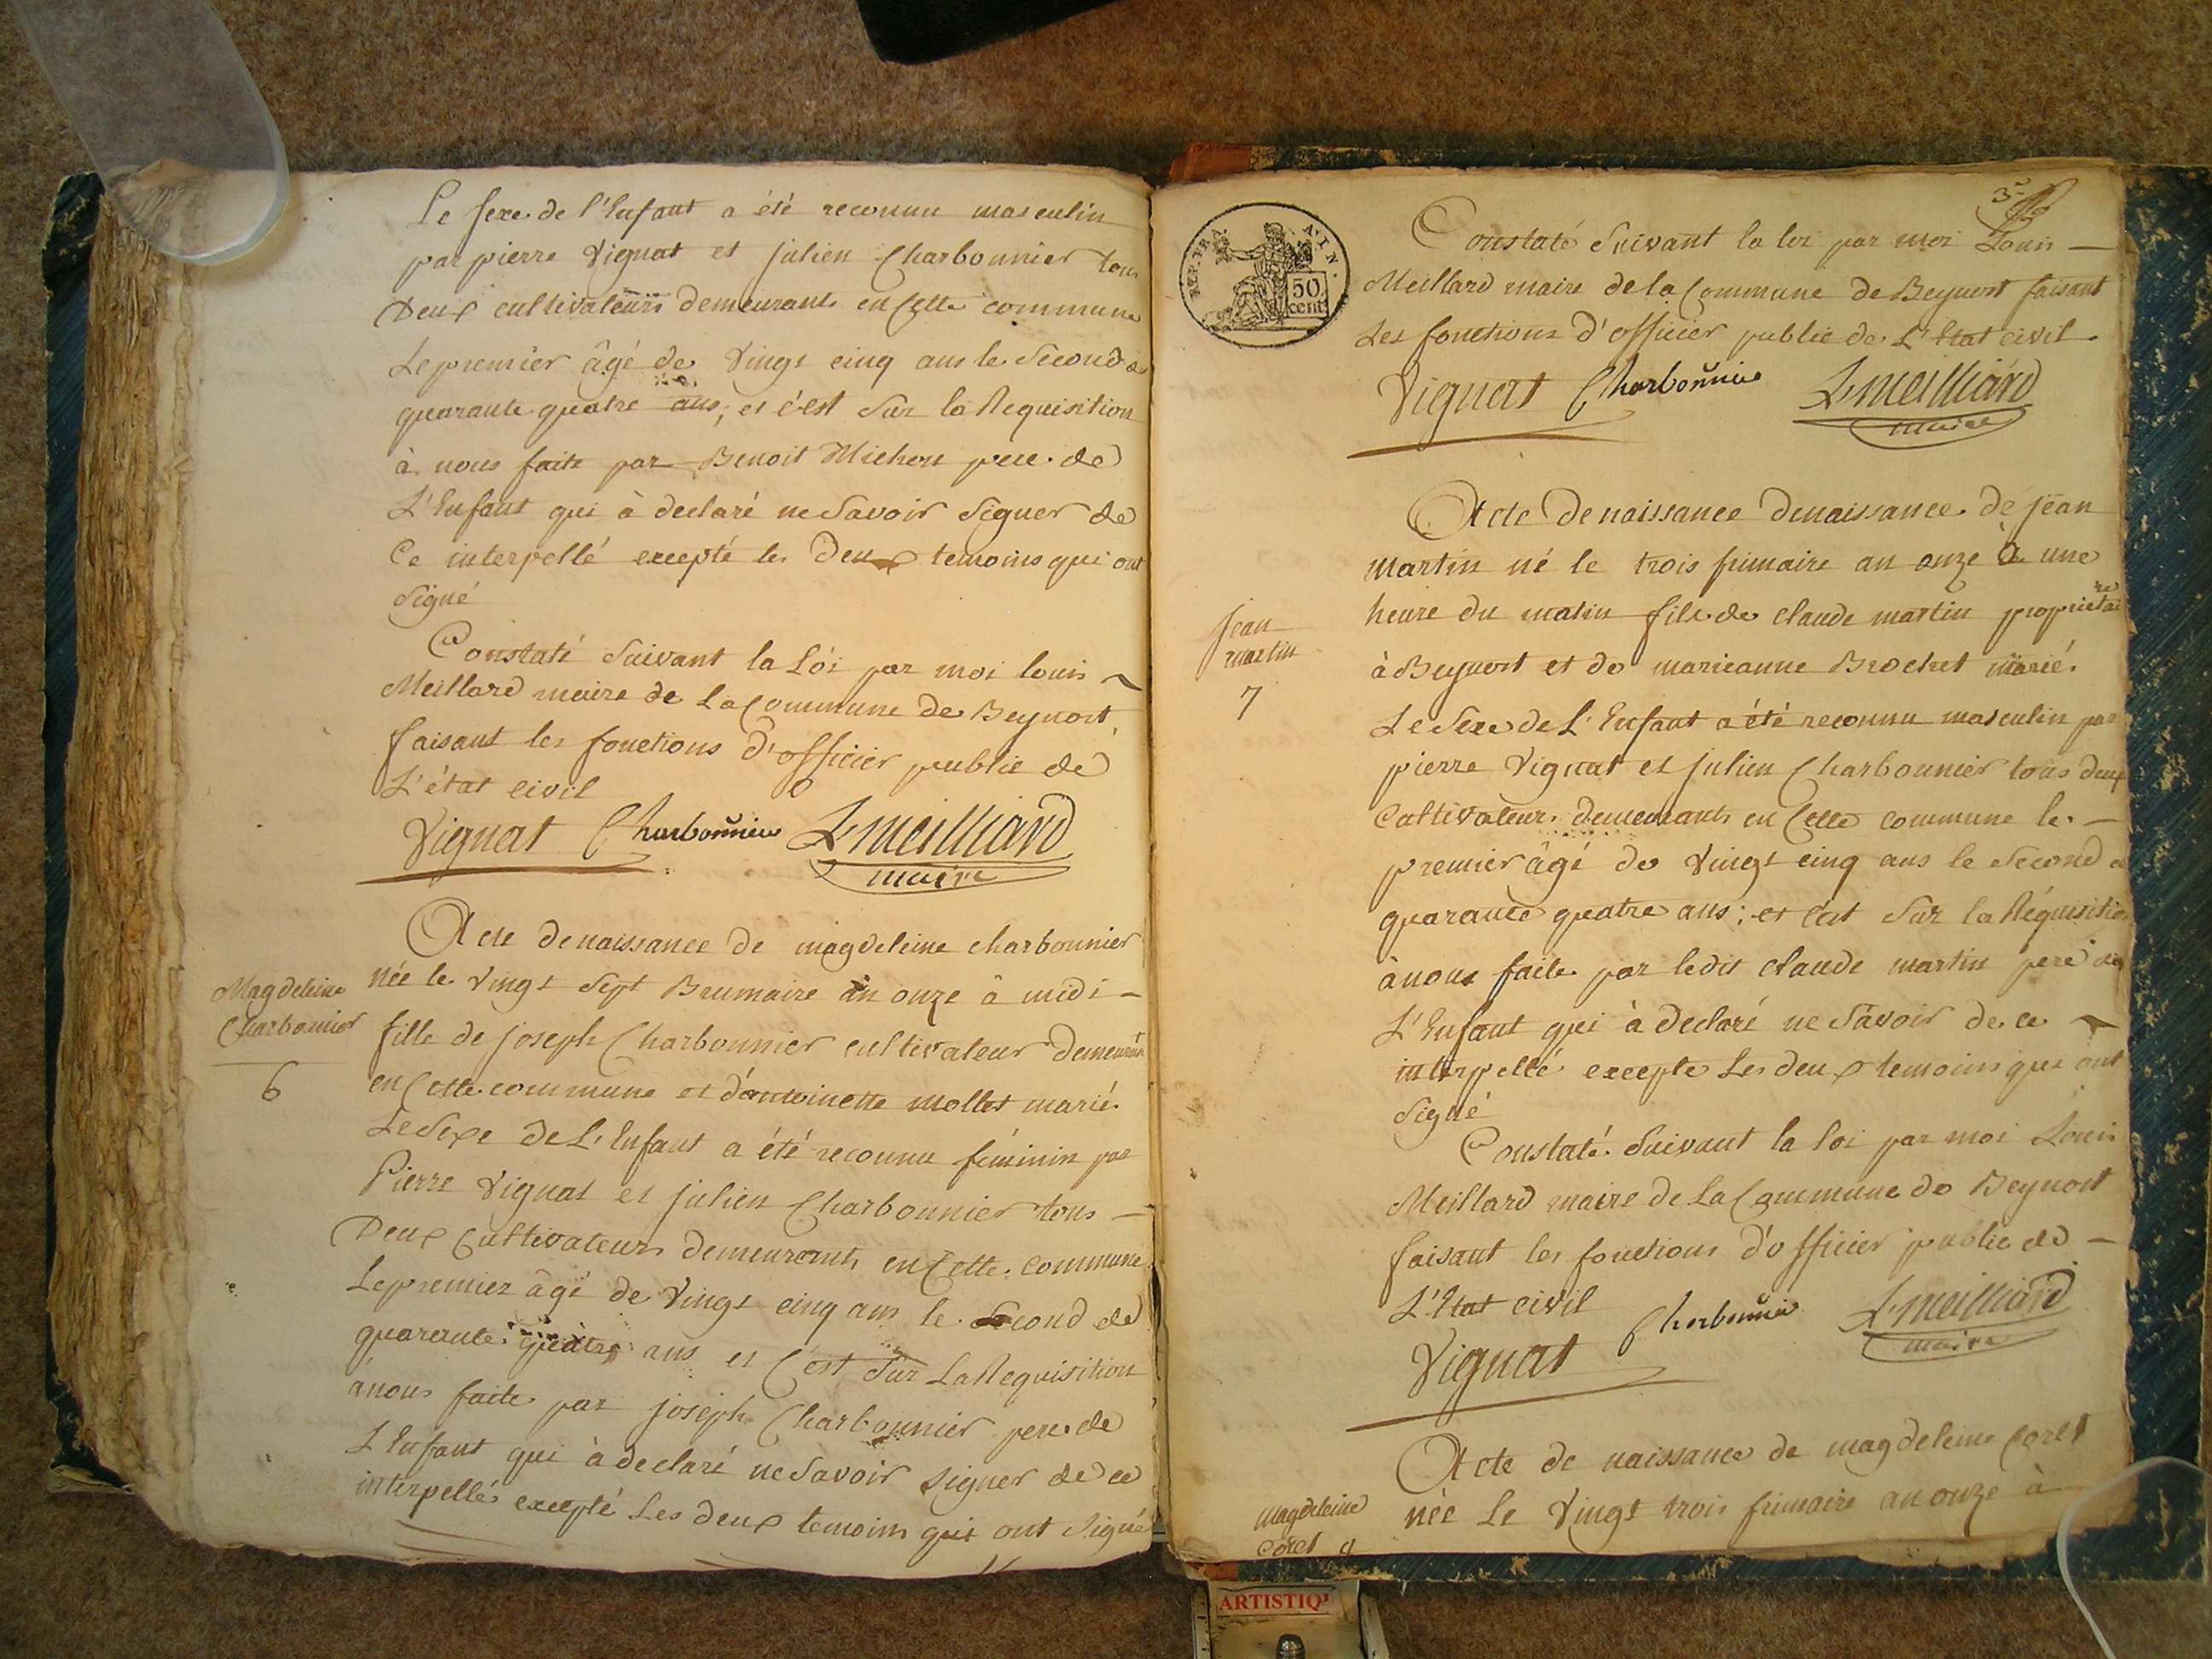 Le sexe de l'Enfant a été reconnu masculin
par pierre Vignat et julien Charbonnier tous
Deux cultivateurs demeurants en Cette commune
Le premier âgé de Vingt cinq ans le Second de
quarante quatre ans; et c'est Sur la Requisition
à nous faite par Benoit Michon pere de
L'Enfant qui à declaré ne Savoir Signer de
Ce interpellé excepté les Deux temoins qui ont
Signé
Constaté Suivant la Loi par moi louis
Meillard maire de La Commune de Beynost
faisant les fonctions d'officier public de
L'état civil
Vignat Charbonnier L. meilliard
maire
Magdeleine
Charbonnier
6
Acte de naissance de magdeleine charbonnier
née le Vingt Sept Brumaire an onze à midi
fille de joseph Charbonnier cultivateur demeurant
en Cette commune et d'antoinette mollet marié.
Le Sexe de L'Enfant a été reconnu féminin par
Pierre Vignat et julien Charbonnier tous
Deux Cultivateurs demeurants en Cette commune
Le premier âgé de Vingt cinq ans le Second de
quarante quatre ans et C'est Sur La Requisition
à nous faite par joseph Charbonnier pere de
L'Enfant qui à declaré ne Savoir Signer de ce
interpellé excepté Les deux temoins qui ont Signé
3e
REP. FRA.
50
cent
Constaté Suivant la loi par moi Louis
Meillard maire de la Commune de Beynost faisant
Les fonctions d'officier public de L'Etat civil
Vignat Charbonnier L. meilliard
maire
jean
martin
7
Acte De naissance De naissance de jean
martin né le trois frimaire an onze à une
heure du matin fils de claude martin proprietaire
à Beynost et de marieanne Brochet marié.
Le Sexe de L'Enfant a été reconnu masculin par
pierre Vignat et julien Charbonnier tous deux
Cultivateurs demeurants en Cette commune le
premier âgé de Vingt cinq ans le Second de
quarante quatre ans; et c'est Sur la Réquisition
à nous faite par ledit claude martin pere de
L'Enfant qui à declaré ne Savoir de ce
interpellé excepte Les deux temoins qui ont
Signé
Constaté Suivant la loi par moi Louis
Meillard maire de La Commune de Beynost
faisant les fonctions d'officier public de
L'Etat civil
Vignat Charbonnier L. meilliard
maire
magdeleine
Coret
Acte de naissance de magdeleine Coret
née Le Vingt trois frimaire an onze à
ARTISTIQ